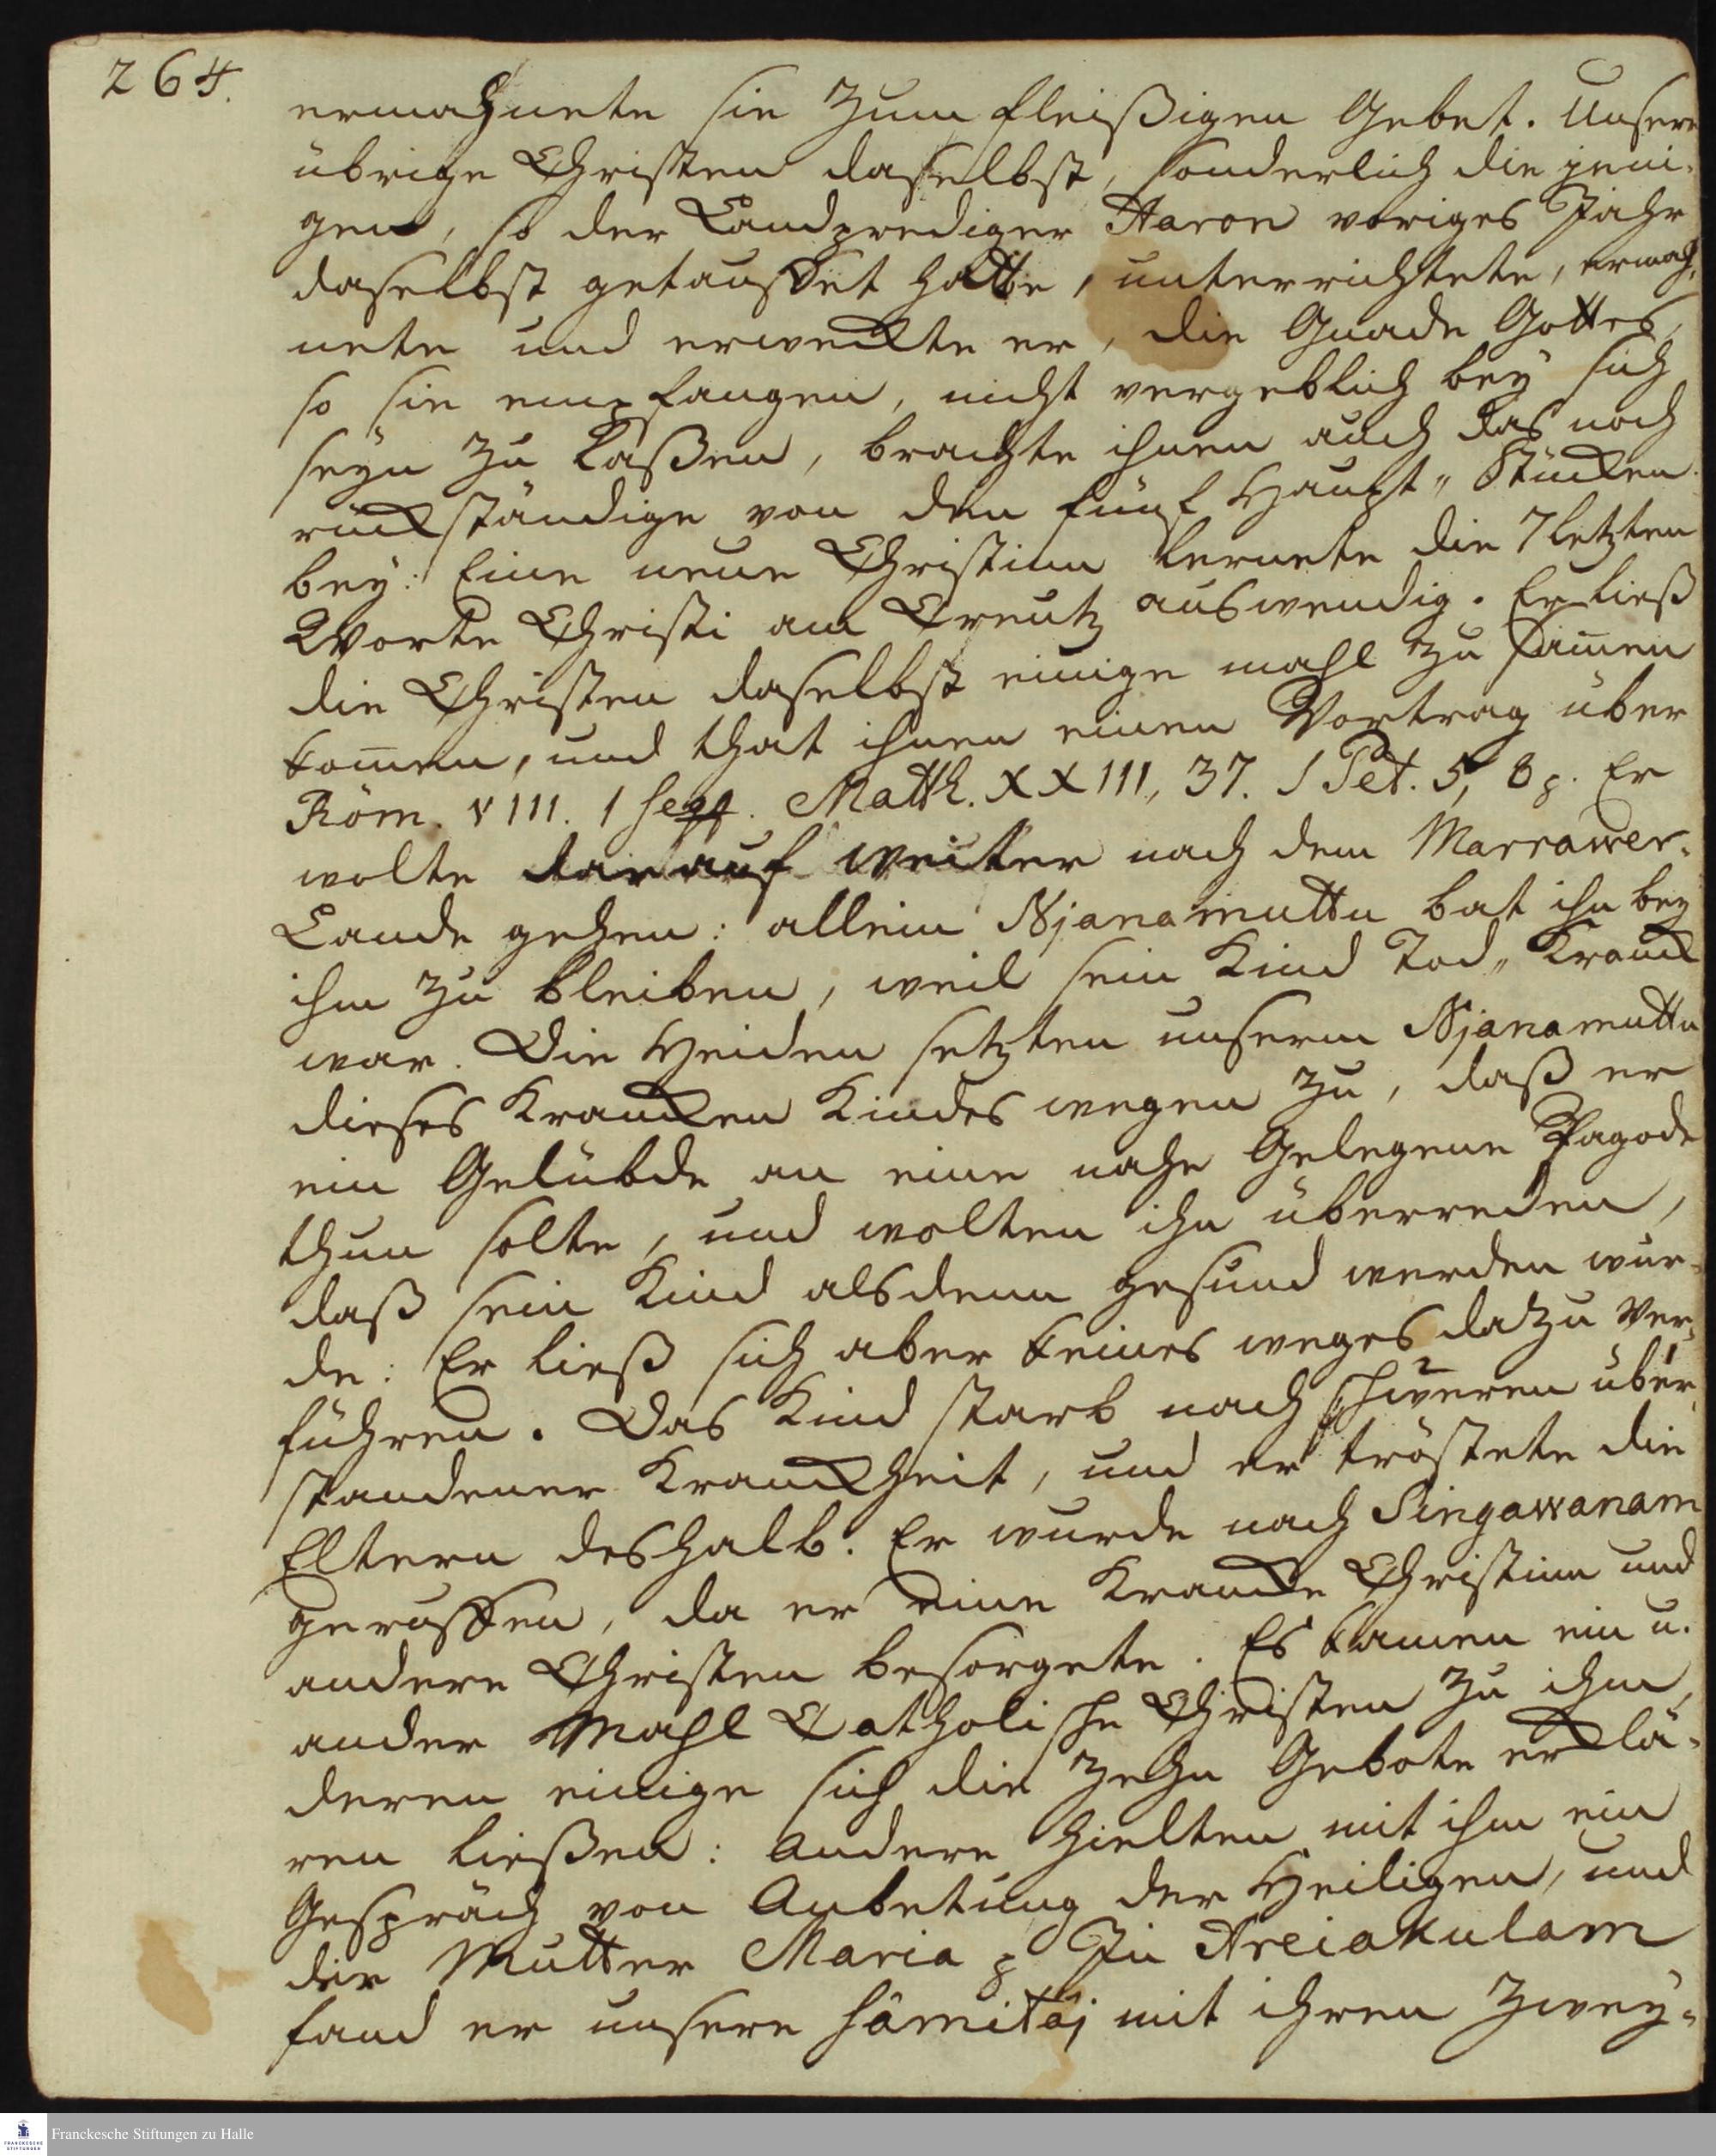 264.
ermahnete sie zum fleißigen Gebet. Unsere
übrige Christen daselbst, sonderlich die jeni-
gen, so der Landprediger Aaron voriges Jahr
daselbst getauffet hatte, unterrichtete, ermah-
nete und erweckte er, die Gnade Gottes,
so sie empfangen, nicht vergeblich bey sich
seyn zu laßen, brachte ihnen auch das noch
rückständige von den fünf Haupt-Stücken
bey: Eine neue Christinn lernete die 7 letzten
Worte Christi am Creutz auswendig. Er ließ
die Christen daselbst einige mahl zu sam̄en
kom̄en, und that ihnen einen Vortrag über
Röm. VIII. 1 seqq. Matth. XXIII, 37. 1 Pet. 5, 8 p. Er
wolte darauf weiter nach dem Marrawer-
Lande gehen: allein Njanamuttu bat ihn bey
ihm zu bleiben, weil sein Kind Tod-Kranck
war. Die Heiden setzten unserm Njanamuttu
dieses Krancken Kindes wegen zu, daß er
ein Gelübde an eine nahe Gelegene Pagode
thun solte, und wolten ihn überreden,
daß sein Kind alsdenn gesund werden wür-
de: Er ließ sich aber keines weges dazu ver-
führen. Das Kind starb nach schweren über-
standener Kranckheit, und er tröstete die
Eltern deshalb. Er wurde nach Singawanam
geruffen, da er eine Krancke Christinn und
andere Christen besorgete. Es kamen ein u.
ander Mahl Catholische Christen zu ihm,
deren einige sich die Zehn Gebote erklä-
ren ließen: Andere hielten mit ihm ein
Gespräch von Anbetung der Heiligen, und
der Mutter Maria p In Areiakulam
fand er unsere Sámitáj mit ihren Zwey-
Franckesche Stiftungen zu Halle
FRANCKESCHE
STIFTUNGEN